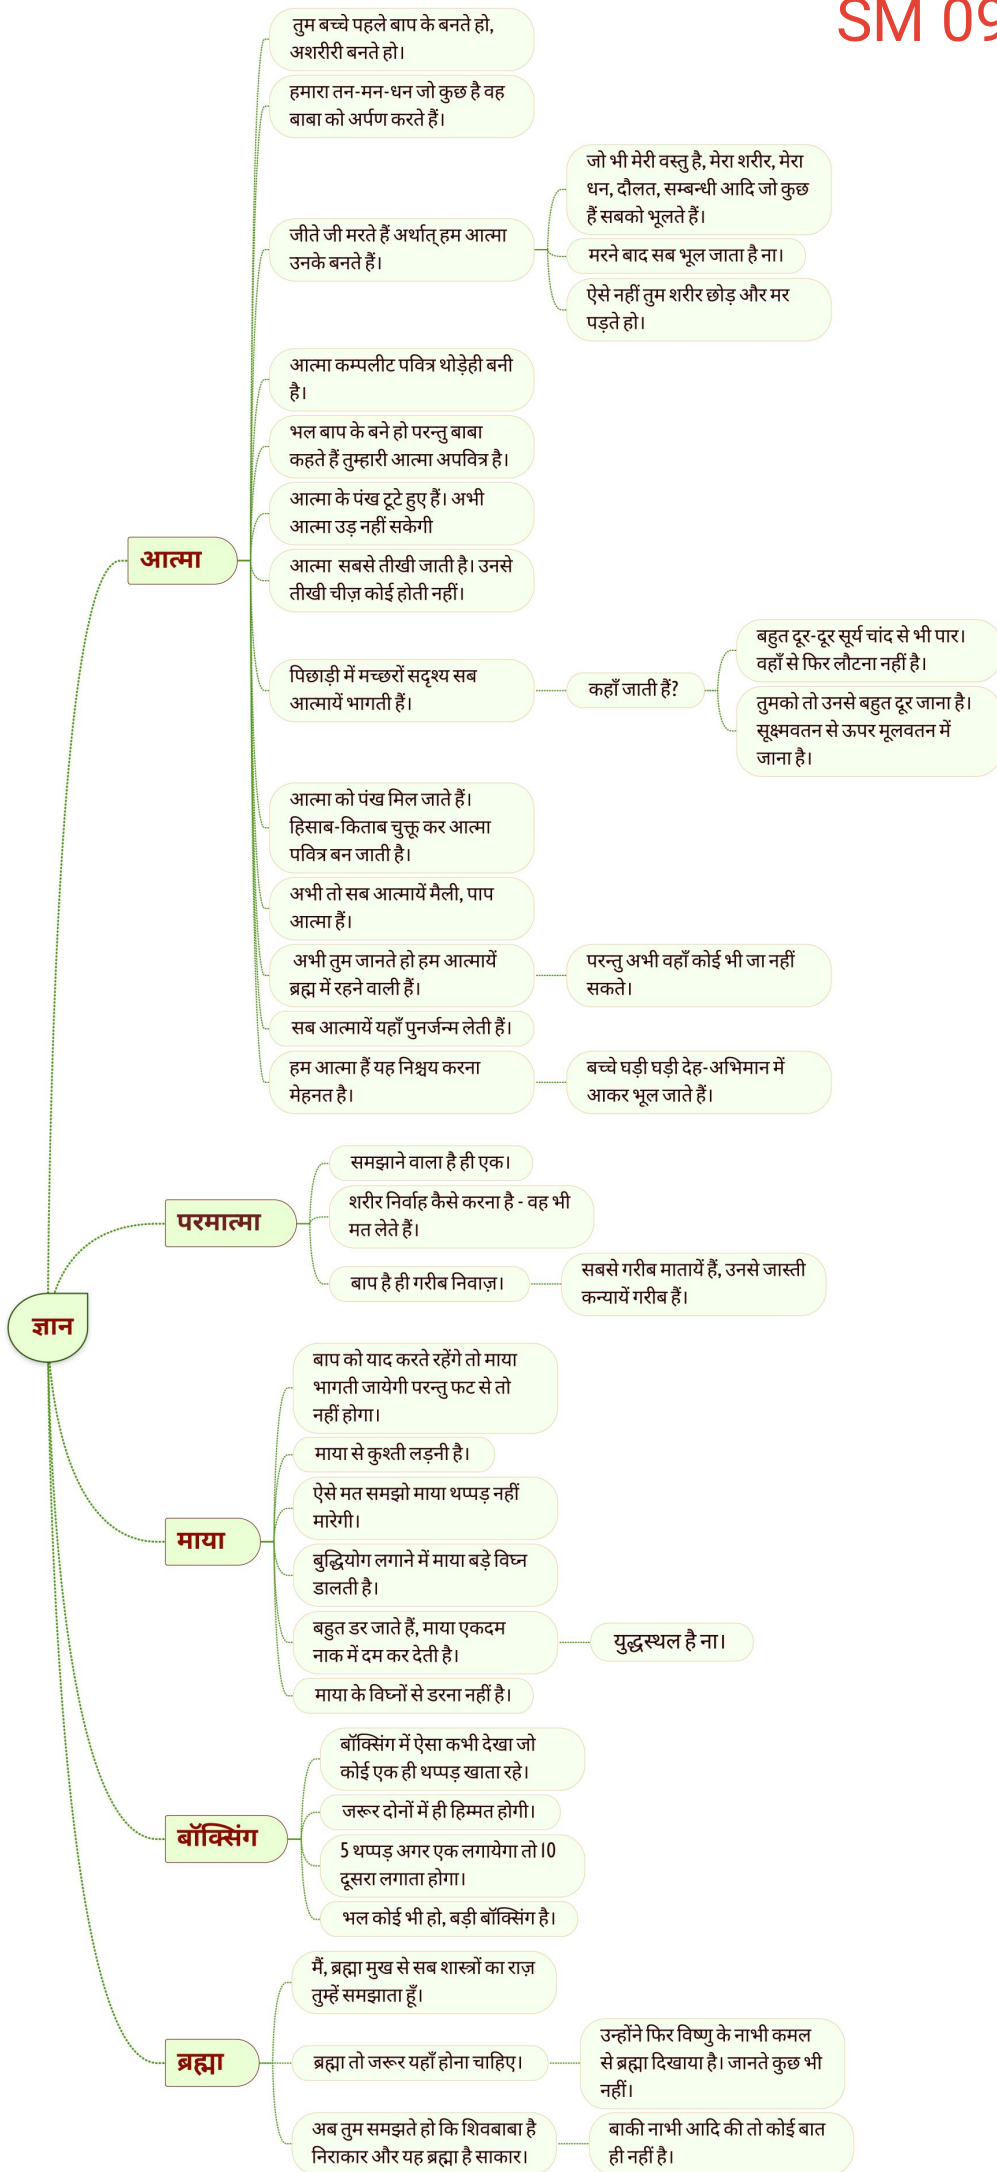 SM 09
तुम बच्चे पहले बाप के बनते हो,
अशरीरी बनते हो।
हमारा तन-मन-धन जो कुछ है वह
बाबा को अर्पण करते हैं।
जीते जी मरते हैं अर्थात् हम आत्मा
उनके बनते हैं।
जो भी मेरी वस्तु है, मेरा शरीर, मेरा
धन, दौलत, सम्बन्धी आदि जो कुछ
हैं सबको भूलते हैं।
मरने बाद सब भूल जाता है ना।
ऐसे नहीं तुम शरीर छोड़ और मर
पड़ते हो।
आत्मा कम्पलीट पवित्र थोड़ेही बनी
है।
भल बाप के बने हो परन्तु बाबा
कहते हैं तुम्हारी आत्मा अपवित्र है।
आत्मा के पंख टूटे हुए हैं। अभी
आत्मा उड़ नहीं सकेगी
आत्मा
आत्मा सबसे तीखी जाती है। उनसे
तीखी चीज़ कोई होती नहीं।
पिछाड़ी में मच्छरों सदृश्य सब
आत्मायें भागती हैं।
कहाँ जाती हैं?
बहुत दूर-दूर सूर्य चांद से भी पार।
वहाँ से फिर लौटना नहीं है।
तुमको तो उनसे बहुत दूर जाना है।
सूक्ष्मवतन से ऊपर मूलवतन में
जाना है।
आत्मा को पंख मिल जाते हैं।
हिसाब-किताब चुक्तू कर आत्मा
पवित्र बन जाती है।
अभी तो सब आत्मायें मैली, पाप
आत्मा हैं।
अभी तुम जानते हो हम आत्मायें
ब्रह्म में रहने वाली हैं।
परन्तु अभी वहाँ कोई भी जा नहीं
सकते।
सब आत्मायें यहाँ पुनर्जन्म लेती हैं।
हम आत्मा हैं यह निश्चय करना
मेहनत है।
बच्चे घड़ी घड़ी देह-अभिमान में
आकर भूल जाते हैं।
समझाने वाला है ही एक।
परमात्मा
शरीर निर्वाह कैसे करना है - वह भी
मत लेते हैं।
बाप है ही गरीब निवाज़।
सबसे गरीब मातायें हैं, उनसे जास्ती
कन्यायें गरीब हैं।
ज्ञान
बाप को याद करते रहेंगे तो माया
भागती जायेगी परन्तु फट से तो
नहीं होगा।
माया से कुश्ती लड़नी है।
ऐसे मत समझो माया थप्पड़ नहीं
मारेगी।
माया
बुद्धियोग लगाने में माया बड़े विघ्न
डालती है।
बहुत डर जाते हैं, माया एकदम
नाक में दम कर देती है।
युद्धस्थल है ना।
माया के विघ्नों से डरना नहीं है।
बॉक्सिंग में ऐसा कभी देखा जो
कोई एक ही थप्पड़ खाता रहे।
जरूर दोनों में ही हिम्मत होगी।
बॉक्सिंग
5 थप्पड़ अगर एक लगायेगा तो 10
दूसरा लगाता होगा।
भल कोई भी हो, बड़ी बॉक्सिंग है।
मैं, ब्रह्मा मुख से सब शास्त्रों का राज़
तुम्हें समझाता हूँ।
ब्रह्मा
ब्रह्मा तो जरूर यहाँ होना चाहिए।
उन्होंने फिर विष्णु के नाभी कमल
से ब्रह्मा दिखाया है। जानते कुछ भी
नहीं।
अब तुम समझते हो कि शिवबाबा है
निराकार और यह ब्रह्मा है साकार।
बाकी नाभी आदि की तो कोई बात
ही नहीं है।